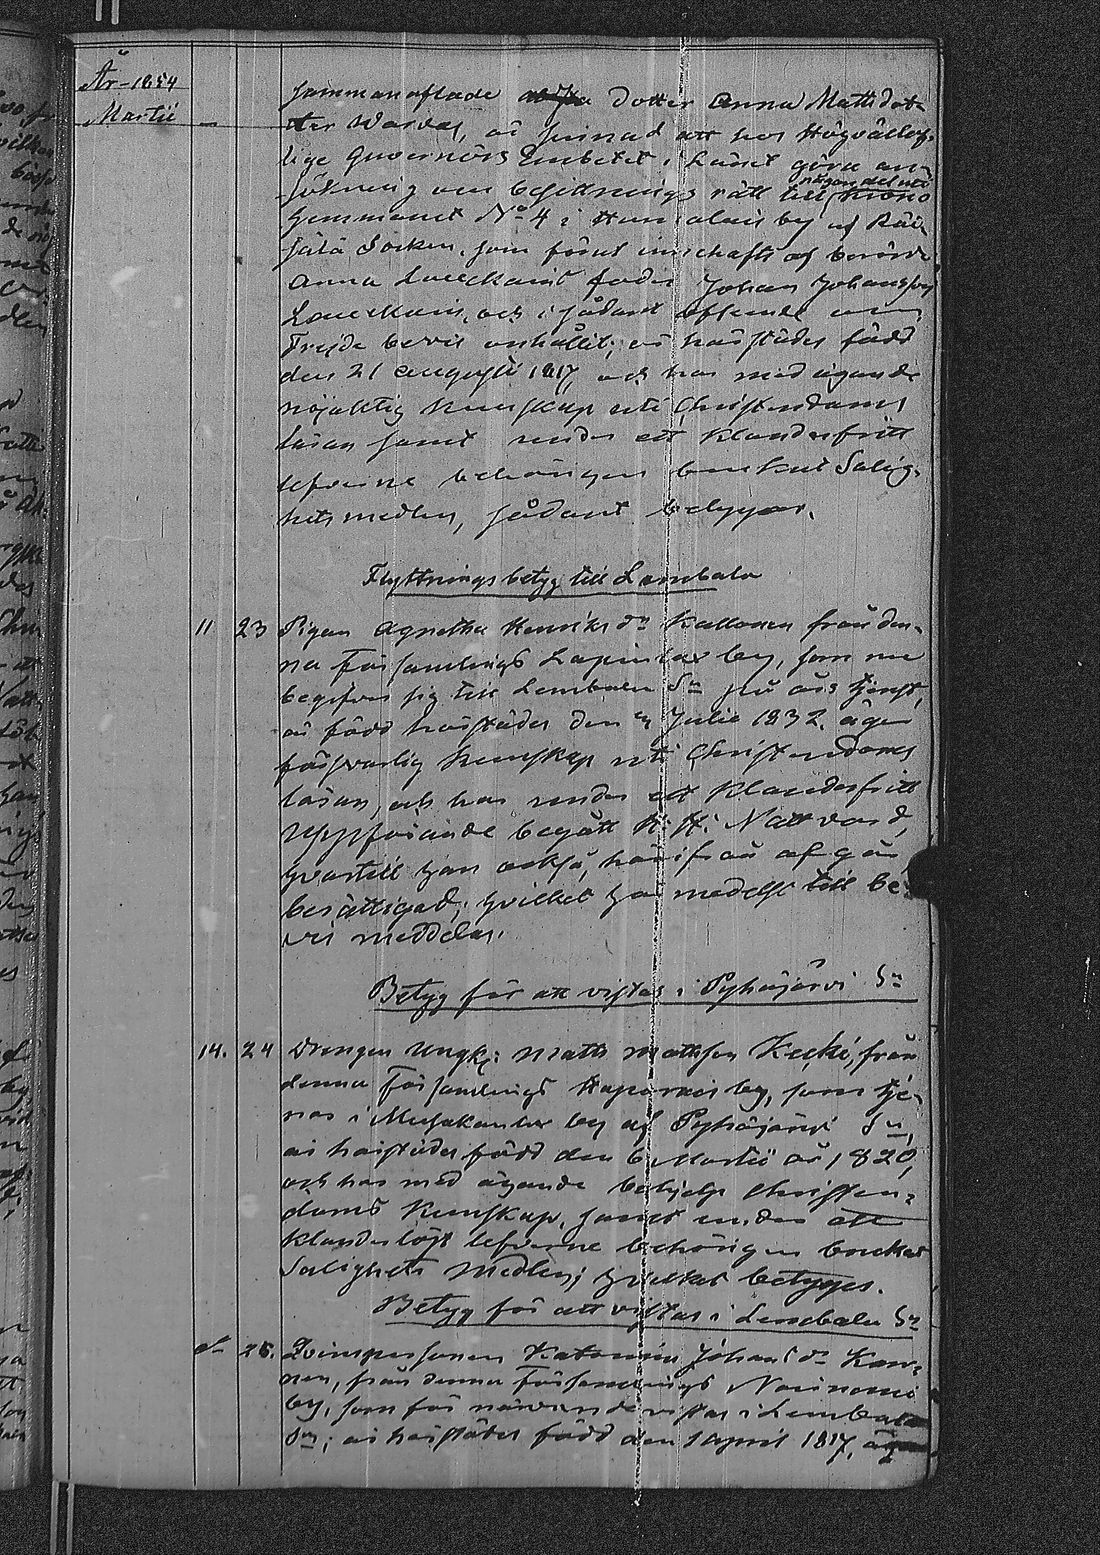 År 1854
Martii
sammanaflade Dotter Anna Mattsdot-
ter är sinnad att hos Högvällof-
lige Guvernörs Embetet i Länet göra an-
sökning om besittnings rätt till någon del uti Krono
Hemmanet No 4 i by af Räi-
sälä Socken, som förut innehafts af berörde
Anna fader Johan Johansson
och i sådant afseende om
Frejde bevis anhållit; är härstädes född
den 21 Augusti 1817, och har med ägande
nöjaktig kunskap uti Christendoms
läran samt under ett klanderfritt
lefverne behörigen bruk at Salig-
hetsmedlen, sådant betygar.
Flyttningsbetyg till Lembala
11 23 Pigan Agnetha Henriks dr Kallonen från den-
na Församlings by, som nu
begifver sig till Lembala Sn på års tjenst,
är född härstädes den Julii 1832, äger
försvarlig kunskap uti Christendoms
läran, och har under ett klanderfritt
uppförande begått H. H. Nattvard,
hvartill hon också, härifrån afgår
berättigad; hvilket medelst till be-
vis meddelas.
Betyg för att vistas i Pyhäjärvi Sn
14. 24 Drengen Ungk: Matts Mattsson Kecki, från
denna Församlings by, som tje-
nar i by af Pyhäjärvi Sn,
är härstädes född den 6 Martii år 1820,
och har med ägande behjelp Christen-
doms kunskap, samt under ett
klanderlöst lefverne behörigen brukat
Salighets Medlen; hvilket betyges.
Betyg för att vistas i Lembala Sn
25. Qvinspersonen Katarina Johans dr
från denna Församlings
by, som för närvarande vistas i Lembala
Sn; är härstädes född den 1 April 1817,